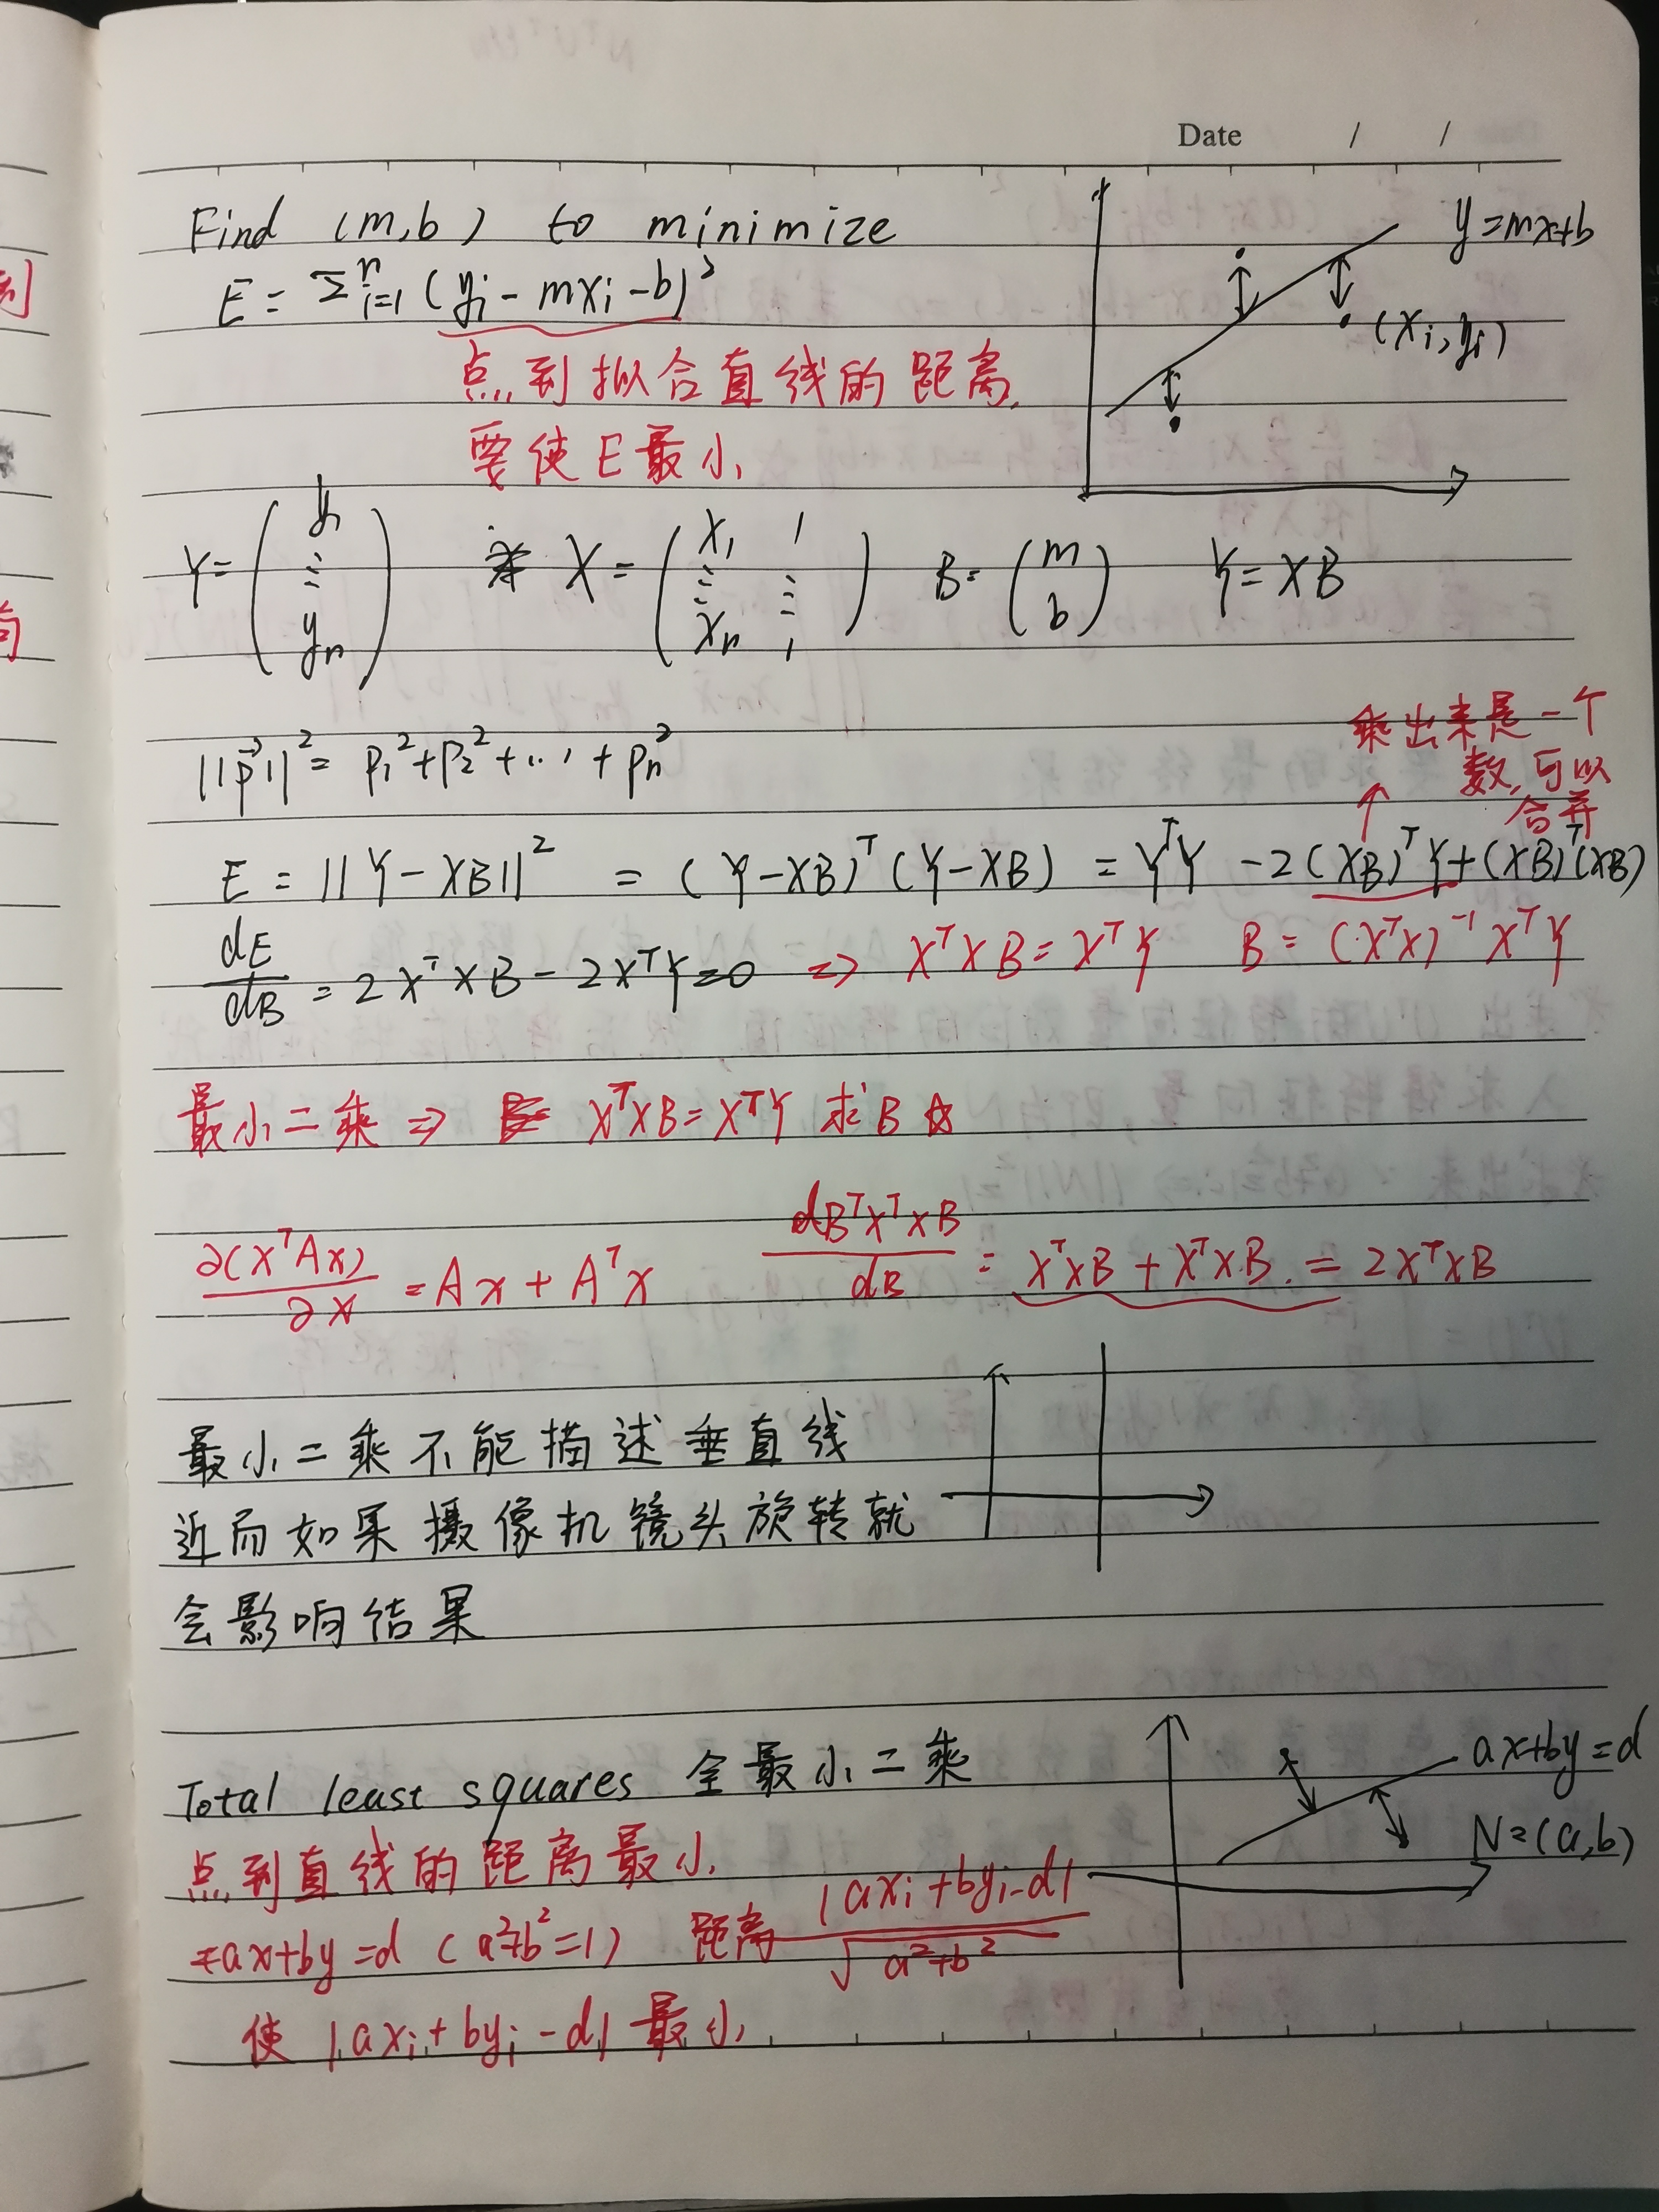 Date / /
Find (m,b) to minimize
y=mx+b
E = Σⁿᵢ₌₁ (yᵢ - mxᵢ - b)²
(xᵢ, yᵢ)
点到拟合直线的距离,
要使E最小
Y = (y₁ ⋮ yₙ) X = (x₁ 1 ⋮ ⋮ xₙ 1) B = (m b) Y = XB
||p⃗||² = p₁²+p₂²+...+pₙ²
乘出来是一个
数,可以
合并
E = ||Y-XB||² = (Y-XB)ᵀ(Y-XB) = YᵀY -2(XB)ᵀY+(XB)ᵀ(XB)
dE/dB = 2XᵀXB - 2XᵀY=0 => XᵀXB = XᵀY B = (XᵀX)⁻¹XᵀY
最小二乘 => XᵀXB=XᵀY 求B ☆
∂(xᵀAx)/∂x = Ax + Aᵀx dBᵀXᵀXB/dB = XᵀXB + XᵀXB. = 2XᵀXB
最小二乘不能描述垂直线
近而如果摄像机镜头旋转就
会影响结果
Total least squares 全最小二乘
ax+by=d
点到直线的距离最小
N=(a,b)
ax+by=d (a²+b²=1) 距离 |axᵢ+byᵢ-d|/√a²+b²
使 |axᵢ+byᵢ-d| 最小